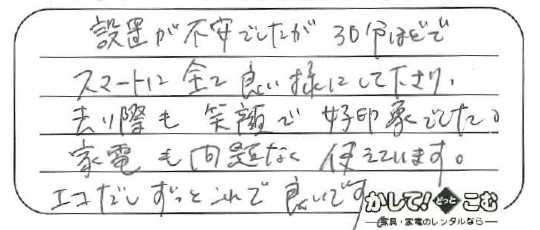 設置が不安でしたが 30分ほどで
スマートに 全て良い様にして下さり、
去り際も 笑顔で 好印象でした。
家電も問題なく 使えています。
エコだし ずっとこれで 良いです
かして!どっとこむ
家具・家電のレンタルなら